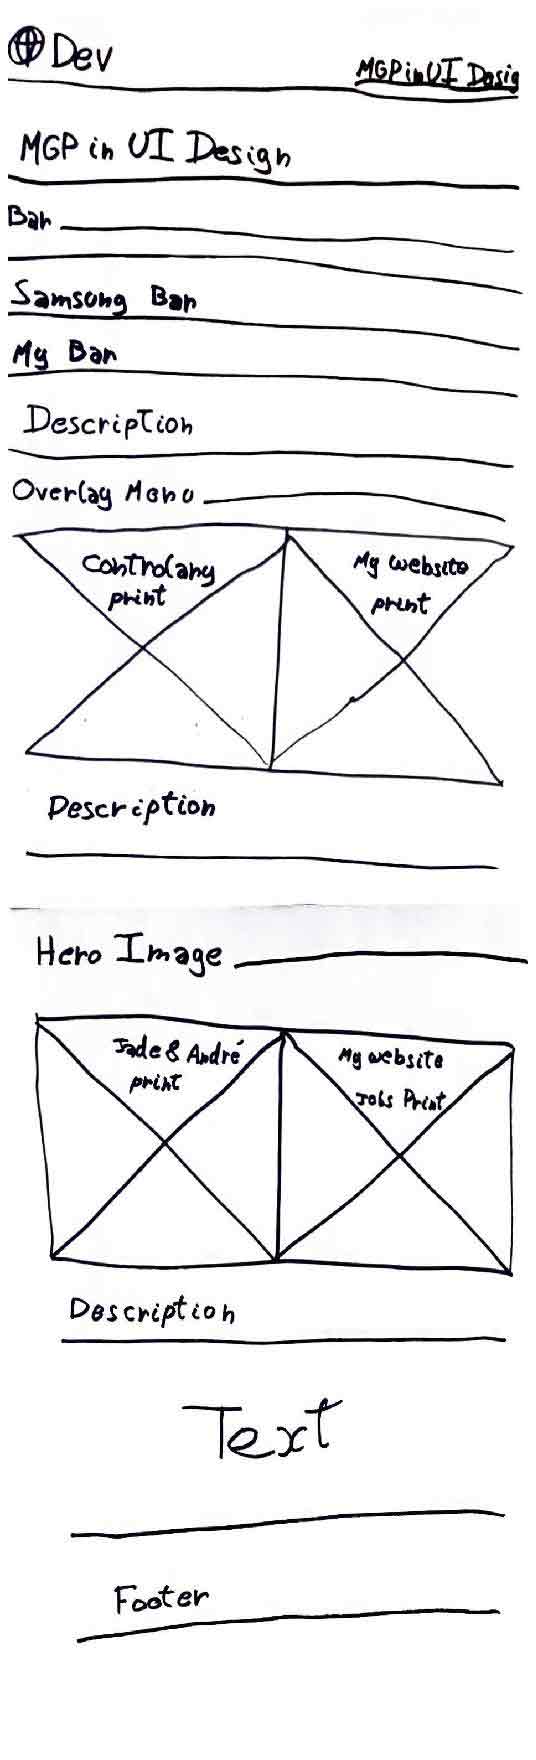 Dev
MGP in UI Desig
MGP in UI Design
Bar
Samsung Bar
My Bar
Description
Overlay Menu
Controlany
print
My website
print
Description
Hero Image
Jade & André
print
My website
Jobs Print
Description
Text
Footer